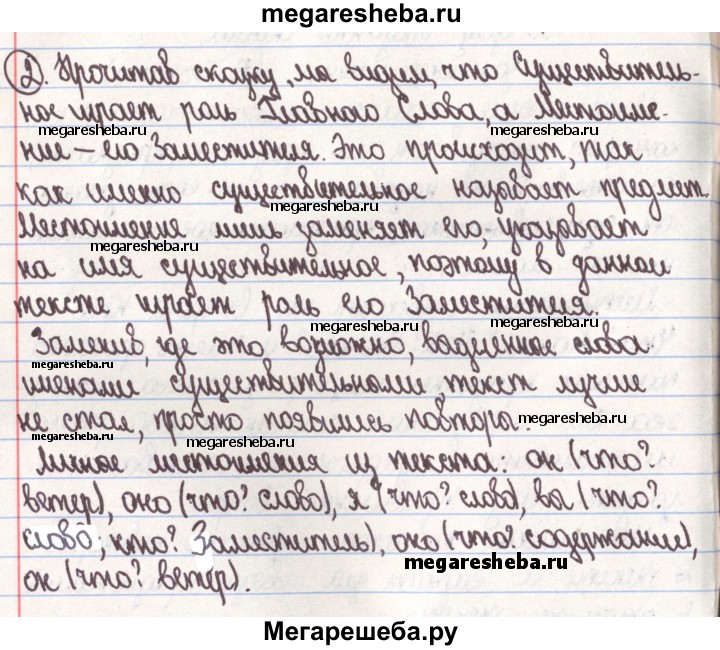 megaresheba.ru
2. Прочитав сказку, мы видим, что Существитель-
ное играет роль Главного Слова, а Местоиме-
megaresheba.ru megaresheba.ru
ние – его Заместителя. Это происходит, так
как именно существительное называет предмет.
megaresheba.ru
Местоимение лишь заменяет его, указывает
megaresheba.ru megaresheba.ru
на имя существительное, поэтому в данном
тексте играет роль его Заместителя.
megaresheba.ru megaresheba.ru
Заменив, где это возможно, выделенные слова
megaresheba.ru
именами существительными, текст лучше
не стал, просто появились повторы.
megaresheba.ru megaresheba.ru megaresheba.ru
Личное местоимения из текста: он (что?
ветер), оно (что? слово), я (что? слово), вы (что?
слово, кто? Заместитель), оно (что? содержание),
megaresheba.ru
он (что? ветер).
Мегарешеба.ру